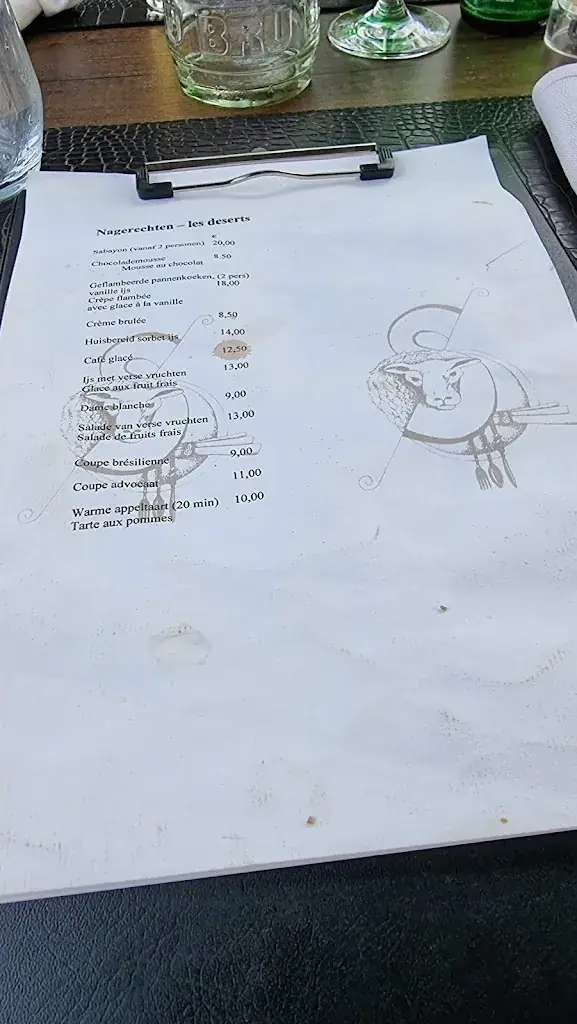 BRU
Nagerechten – les deserts
€
Sabayon (vanaf 2 personen) 20,00
Chocolademousse 8.50
Mousse au chocolat
Geflambeerde pannenkoeken, (2 pers)
vanille ijs 18,00
Crêpe flambée
avec glace à la vanille
Crème brulée 8,50
Huisbereid sorbet ijs 14,00
Café glacé 12,50
Ijs met verse vruchten 13,00
Glace aux fruit frais
Dame blanche 9,00
Salade van verse vruchten 13,00
Salade de fruits frais
Coupe brésilienne 9,00
Coupe advocaat 11,00
Warme appeltaart (20 min) 10,00
Tarte aux pommes